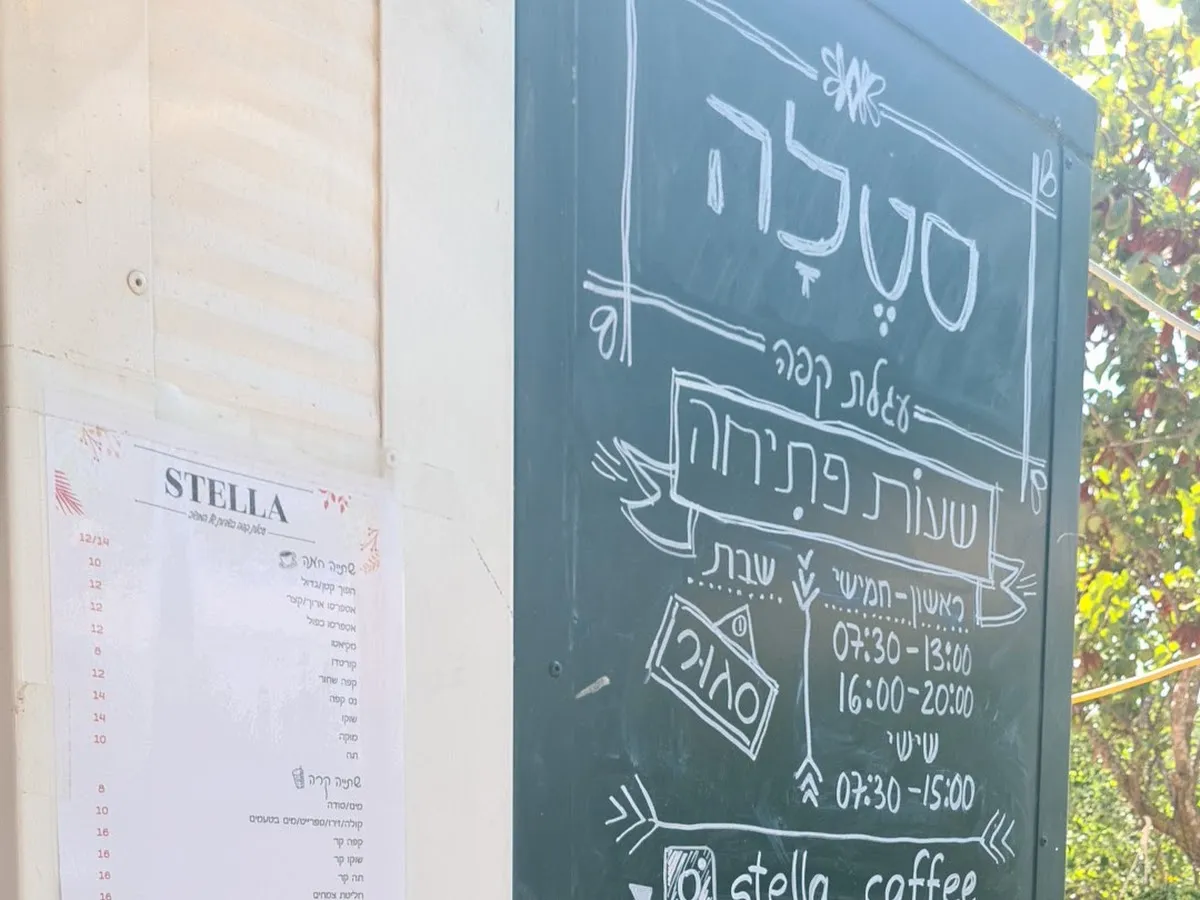 סְטֶלָה
עגלת קפה
שעות פתיחה
ראשון-חמישי
07:30-13:00
16:00-20:00
שישי
07:30-15:00
שבת
סגור
stella coffee
STELLA
שתייה חמה
הפוך קטן/גדול 12/14
אספרסו ארוך/קצר 10
אספרסו כפול 12
מקיאטו 12
קורטדו 12
קפה שחור 8
נס קפה 12
שוקו 14
מוקה 14
תה 10
שתייה קרה
מים/סודה 8
קולה/זירו/ספרייט/מים בטעמים 10
קפה קר 16
שוקו קר 16
תה קר 16
חליטת צמחים 16